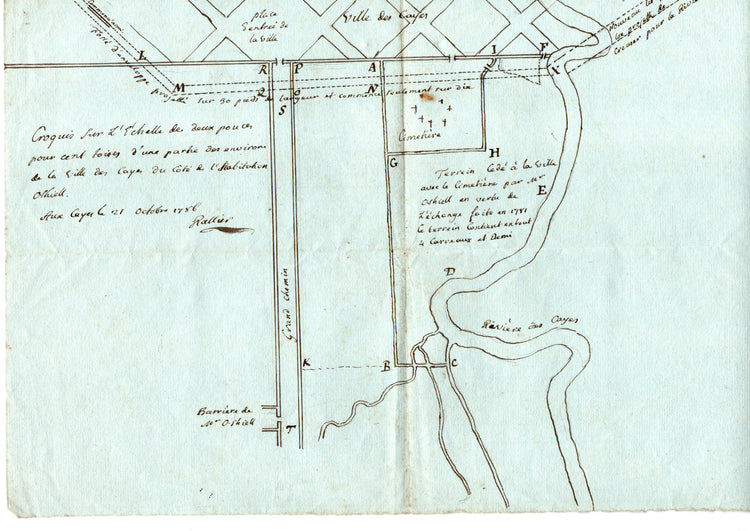 Place
d'entrée de
la Ville
Ville des Cayes
Nouveau
projetté
pour la Rivière
L
R
P
A
I
F
X
M
Q
O
N
S
fossé d'enveloppe projetté sur 30 pieds de largeur et commencé seulement sur dix
Cimetière
G
H
Croquis Sur L'Echelle de deux pouces
pour cent toises d'une partie des environs
de la Ville des Cayes du Côté de l'Habitation
Oshiell.
Aux Cayes le 21 Octobre 1786
Rallier
Terrein Cédé à la Ville
avec le Cimetière par Mr
Oshiell en vertu de
L'échange faite en 1781
le terrein Contient en tout
4 Carreaux et Demi.
E
D
Grand Chemin
Rivière des Cayes
K
B
C
Barrière de
Mr Oshiell
T